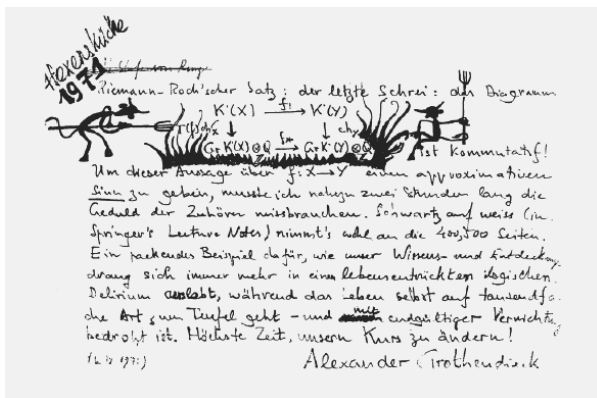 Hexenküche
1971
Riemann-Roch'scher Satz: der letzte Schrei: das Diagramm
K˙(X) f! K˙(Y)
chY
Gr K˙(X)⊗Q f* Gr K˙(Y)⊗Q
ist kommutatif!
Um dieser Aussage über f: X→Y einen approximativen
Sinn zu geben, musste ich nahezu zwei Stunden lang die
Geduld der Zuhörer missbrauchen. Schwartz auf weiss (in
Springer's Lecture Notes) nimmt's wohl an die 400, 500 Seiten.
Ein packendes Beispiel dafür, wie unser Wissens- und Entdeckungs-
drang sich immer mehr in einem lebensentrückten logischen
Delirium auslebt, während das Leben selbst auf tausendfa-
che Art zum Teufel geht – und mit endgültiger Vernichtung
bedroht ist. Höchste Zeit, unsern Kurs zu ändern!
Alexander Grothendieck